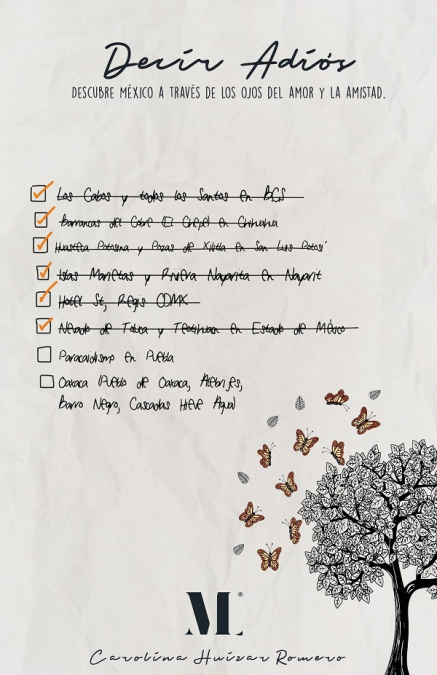 Decir Adiós
DESCUBRE MÉXICO A TRAVÉS DE LOS OJOS DEL AMOR Y LA AMISTAD.
Los Cabos y todos los Santos en BCS
Barrancas del Cobre (El Chepe) en Chihuahua
Huasteca Potosina y Pozas de Xilitla en San Luis Potosí
Islas Marietas y Riviera Nayarita en Nayarit
Hotel St, Regis CDMX
Nevado de Toluca y Teotihuacan en Estado de México
Paracaidismo en Puebla
Oaxaca (Pueblo de Oaxaca, Alebrijes,
Barro Negro, Cascadas Hierve Agua)
ML®
Carolina Huizar Romero